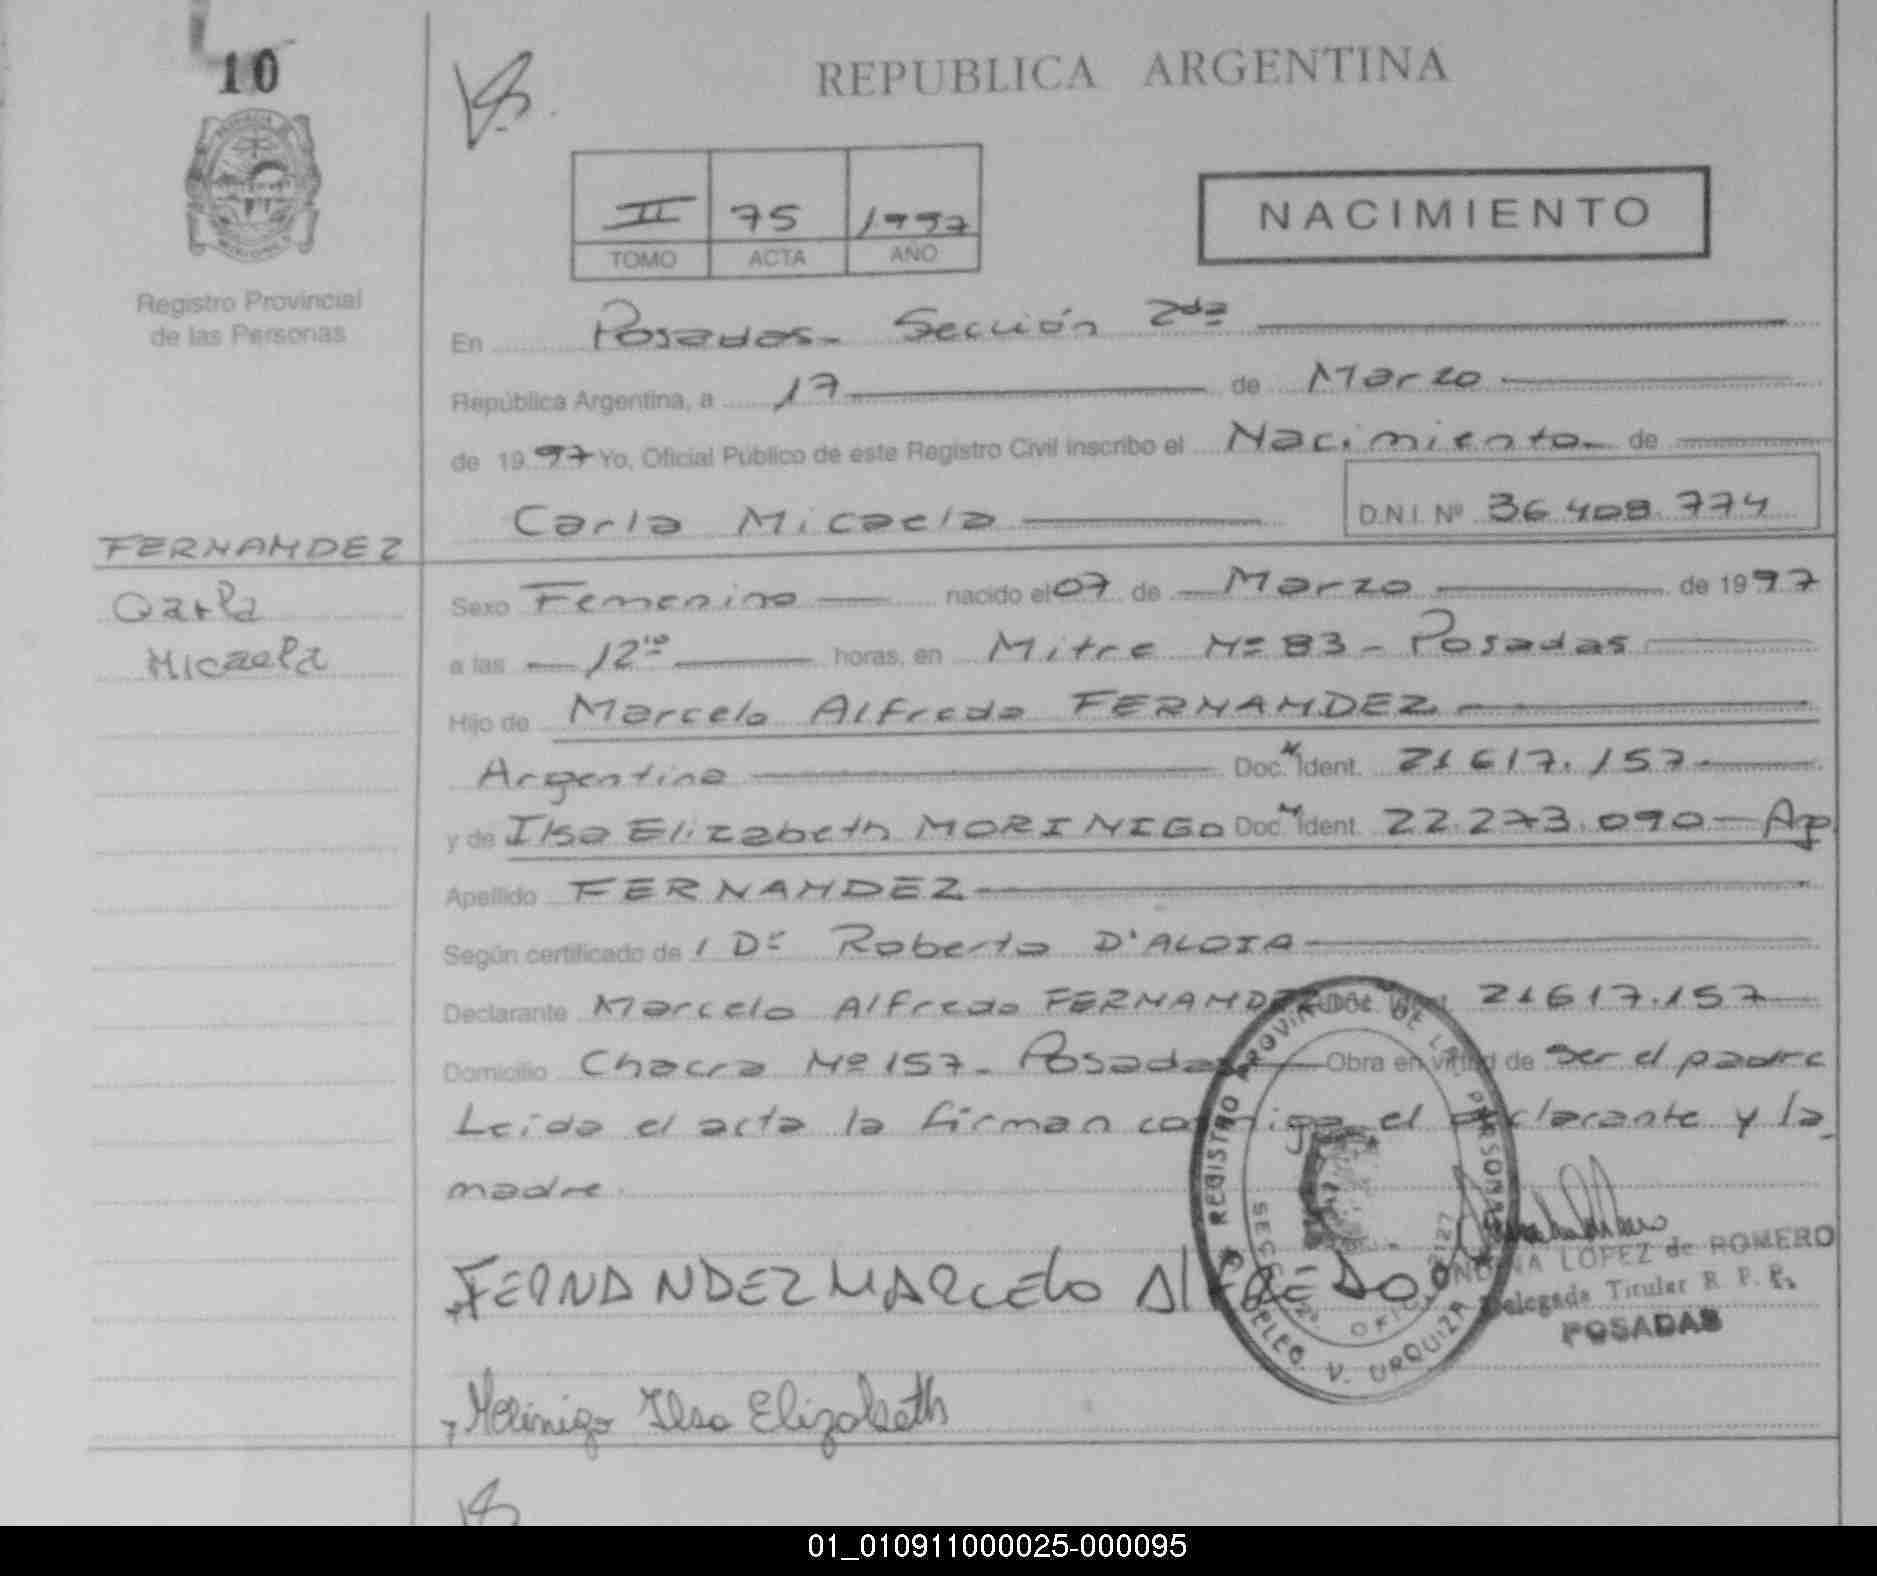 10
REPUBLICA ARGENTINA
II 75 1997
TOMO ACTA AÑO
NACIMIENTO
Registro Provincial
de las Personas
En Posadas- Sección 2da
República Argentina, a 17 de Marzo
de 1997 Yo, Oficial Público de este Registro Civil inscribo el Nacimiento de
Carla Micaela D.N.I. Nº 36.408.774
FERNANDEZ
Carla
Micaela
Sexo Femenino nacido el 07 de Marzo de 1997
a las 12 10 horas, en Mitre Nº 83 - Posadas
Hijo de Marcelo Alfredo FERNANDEZ
Argentino Doc. Ident. 21.617.157
y de Ilsa Elizabeth MORINIGO Doc. Ident. 22.273.090 - Ap
Apellido FERNANDEZ
Según certificado de Dr Roberto D'ALOIA
Declarante Marcelo Alfredo FERNANDEZ Doc. Ident. 21.617.157
Domicilio Chacra Nº 157 - Posadas Obra en virtud de ser el padre
Leida el acta la firman conmigo el declarante y la
madre
FERNANDEZ MARCELO AlFREDO
Morinigo Ilsa Elizabeth
REGISTRO PROVINCIAL DE LAS PERSONAS
V. URQUIZA
LOPEZ de ROMERO
Delegada Titular R. P. P.
POSADAS
01_010911000025-000095